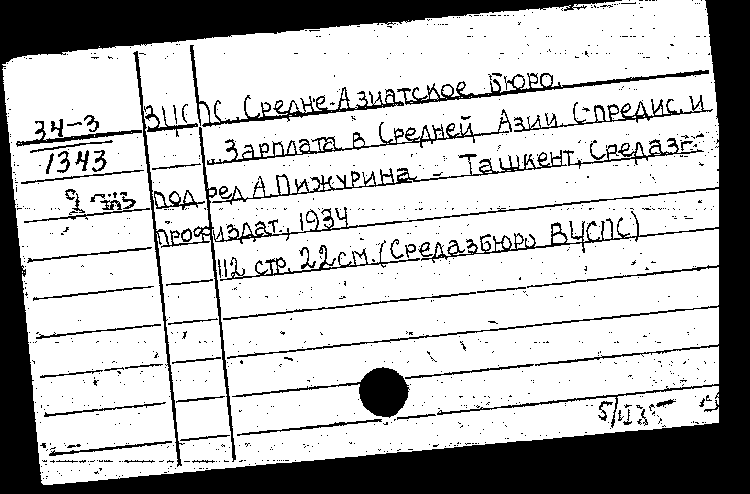 34-3
1343
2 экз
ВЦСПС. Средне-Азиатское Бюро.
Зарплата в Средней Азии. С предис. и
под ред А. Пижурина – Ташкент, Средаз-
профиздат, 1934
112 стр. 22 см. (Средазбюро ВЦСПС)